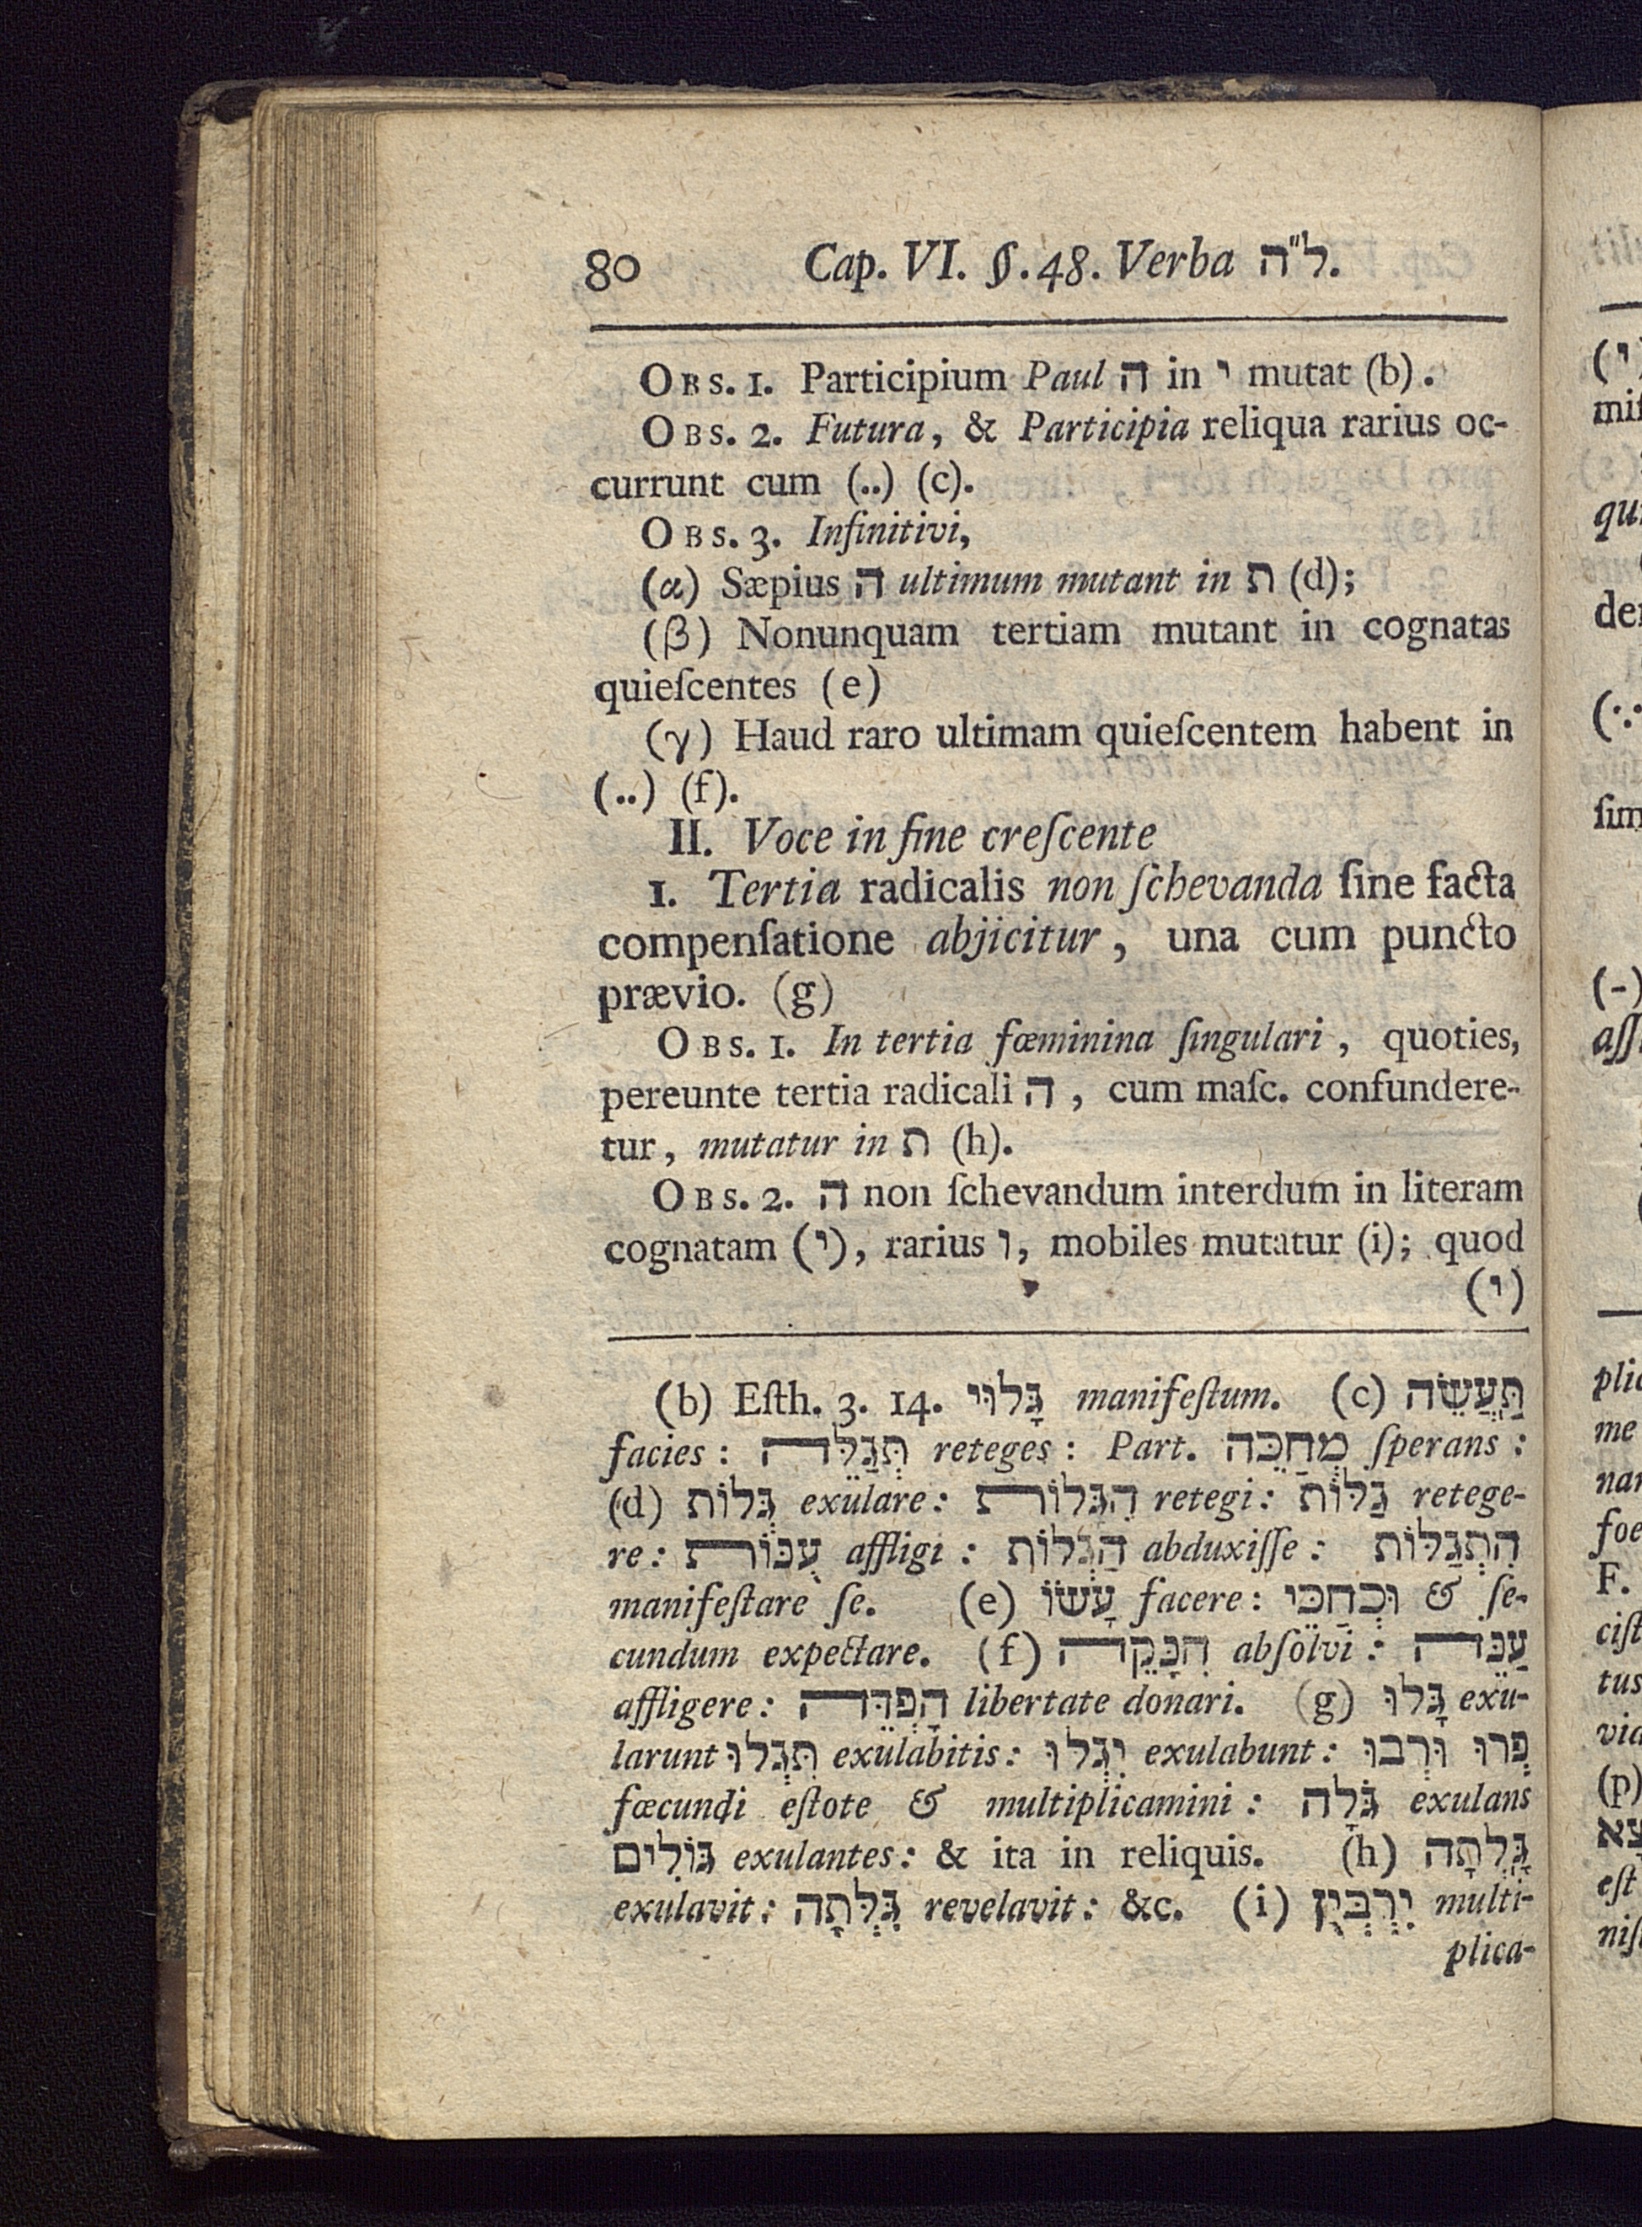 80 Cap. VI. §. 48. Verba ל״ה.
OBS. 1. Participium Paul ה in י mutat (b).
OBS. 2. Futura, & Participia reliqua rarius oc-
currunt cum (..) (c).
OBS. 3. Infinitivi,
(α) Sæpius ה ultimum mutant in ת (d);
(β) Nonunquam tertiam mutant in cognatas
quieſcentes (e)
(γ) Haud raro ultimam quieſcentem habent in
(..) (f).
II. Voce in fine creſcente
1. Tertia radicalis non ſchevanda ſine facta
compenſatione abjicitur, una cum puncto
prævio. (g)
OBS. 1. In tertia fœminina ſingulari, quoties,
pereunte tertia radicali ה, cum maſc. confundere-
tur, mutatur in ת (h).
OBS. 2. ה non ſchevandum interdum in literam
cognatam (י), rarius ו, mobiles mutatur (i); quod
(י)
(b) Eſth. 3. 14. גָּלוּי manifeſtum. (c) תַּעֲשֵׂה
facies: תְּגַלֵּה reteges: Part. מְחַכֵּה ſperans:
(d) גְּלוֹת exulare: הִגָּלוֹת retegi: גַּלּוֹת retege-
re: עֻנּוֹת affligi: הַגְלוֹת abduxiſſe: הִתְגַּלּוֹת
manifeſtare ſe. (e) עָשׂוֹ facere: וּכְחַכֵּי & ſe-
cundum expectare. (f) הִנָּקֵה abſolvi: עַנֵּה
affligere: הָפְדֵּה libertate donari. (g) גָּלוּ exu-
larunt תִּגְלוּ exulabitis: יִגְלוּ exulabunt: פְּרוּ וּרְבוּ
fœcundi eſtote & multiplicamini: גֹּלָה exulans
גּוֹלִים exulantes: & ita in reliquis. (h) גָּלְתָה
exulavit: גִּלְּתָה revelavit: &c. (i) יִרְבְּיֻן multi-
plica-
(י)
miſ
qui
der
(∵
ſim
(-)
aſſ
plic
me
nar
foe
F.
ciſt
tus
via
(p)
צָא
eſt
niſ